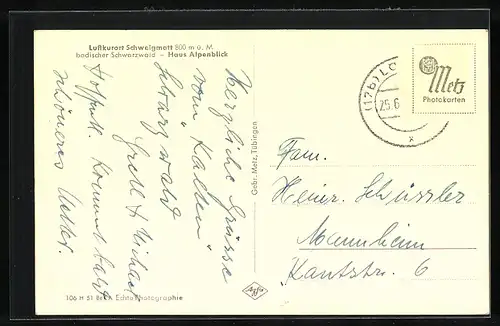 Luftkurort Schweigmatt 800 m ü. M.
badischer Schwarzwald – Haus Alpenblick
Herzliche Grüsse
vom "Kalten"
Schwarzwald
Gretl & Michael
Hoffentl. kommt bald
schöneres Wetter.
106 H 51 Echte Photographie
Gebr. Metz, Tübingen
Agfa
(17b) LO
25.6
Metz
Photokarten
Fam.
Heinr. Schüssler
Mannheim
Kantstr. 6